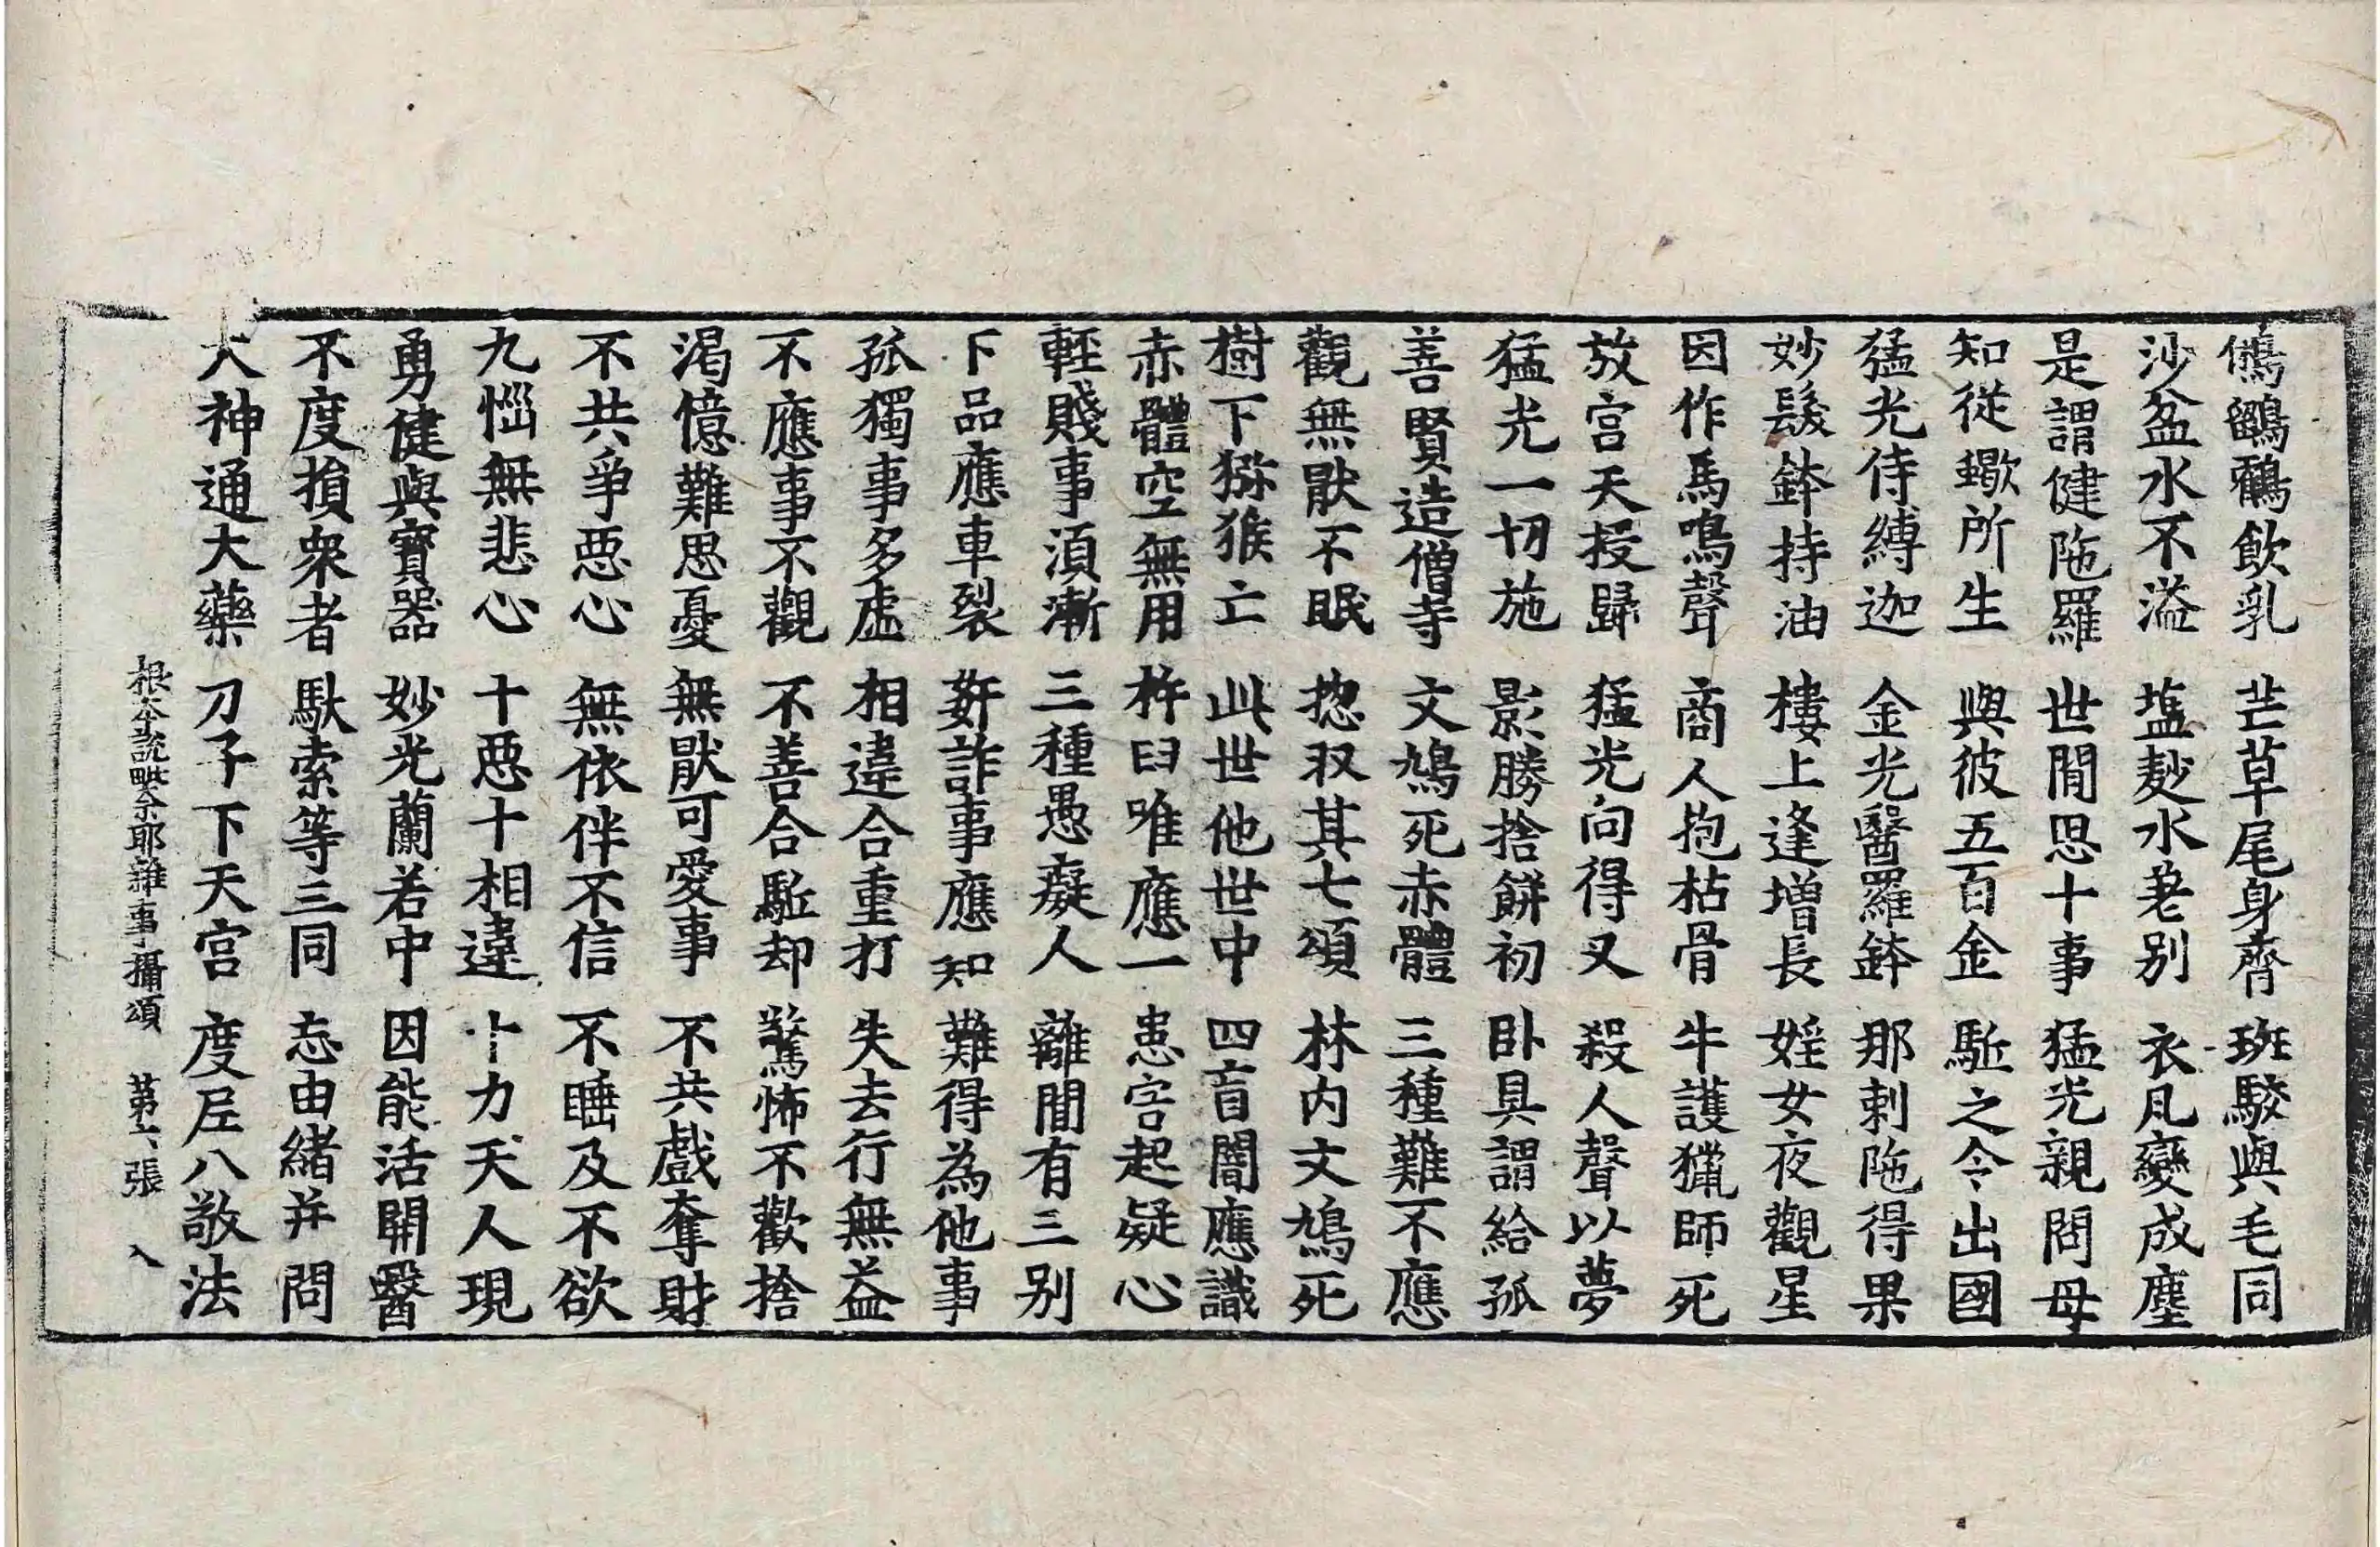 鵂鶹鸜飲乳 芒草尾身齊 斑駮與毛同
沙盆水不溢 塩麨水老别 衣凡變成塵
是謂健陁羅 世間思十事 猛光親問母
知從蠍所生 與彼五百金 駈之令出國
猛光侍縛迦 金光醫羅鉢 那剌陁得果
妙髮鉢持油 樓上逢增長 婬女夜觀星
因作馬鳴聲 商人抱枯骨 牛護獵師死
放宫天授歸 猛光向得叉 殺人聲以夢
猛光一切施 影勝捨餅初 卧具謂給孤
善賢造僧寺 文鳩死赤體 三種難不應
觀無猒不眠 揔収其七頌 林内文鳩死
樹下獼猴亡 此世他世中 四盲闇應識
赤體空無用 杵臼唯應一 患害起疑心
輕賤事湏漸 三種愚癡人 離間有三别
下品應車裂 姧詐事應知 難得為他事
孤獨事多虛 相違合重打 失去行無益
不應事不觀 不善合駈却 驚怖不歡捨
渴憶難思憂 無猒可愛事 不共戲奪財
不共爭惡心 無依伴不信 不睡及不欲
九惱無悲心 十惡十相違 十力天人現
勇健與寳器 妙光蘭若中 因能活開醫
不度損衆者 馱索等三同 忘由緒并問
大神通大藥 刀子下天宫 度尼八敬法
根本説毗奈耶雜事攝頌 第六張 入